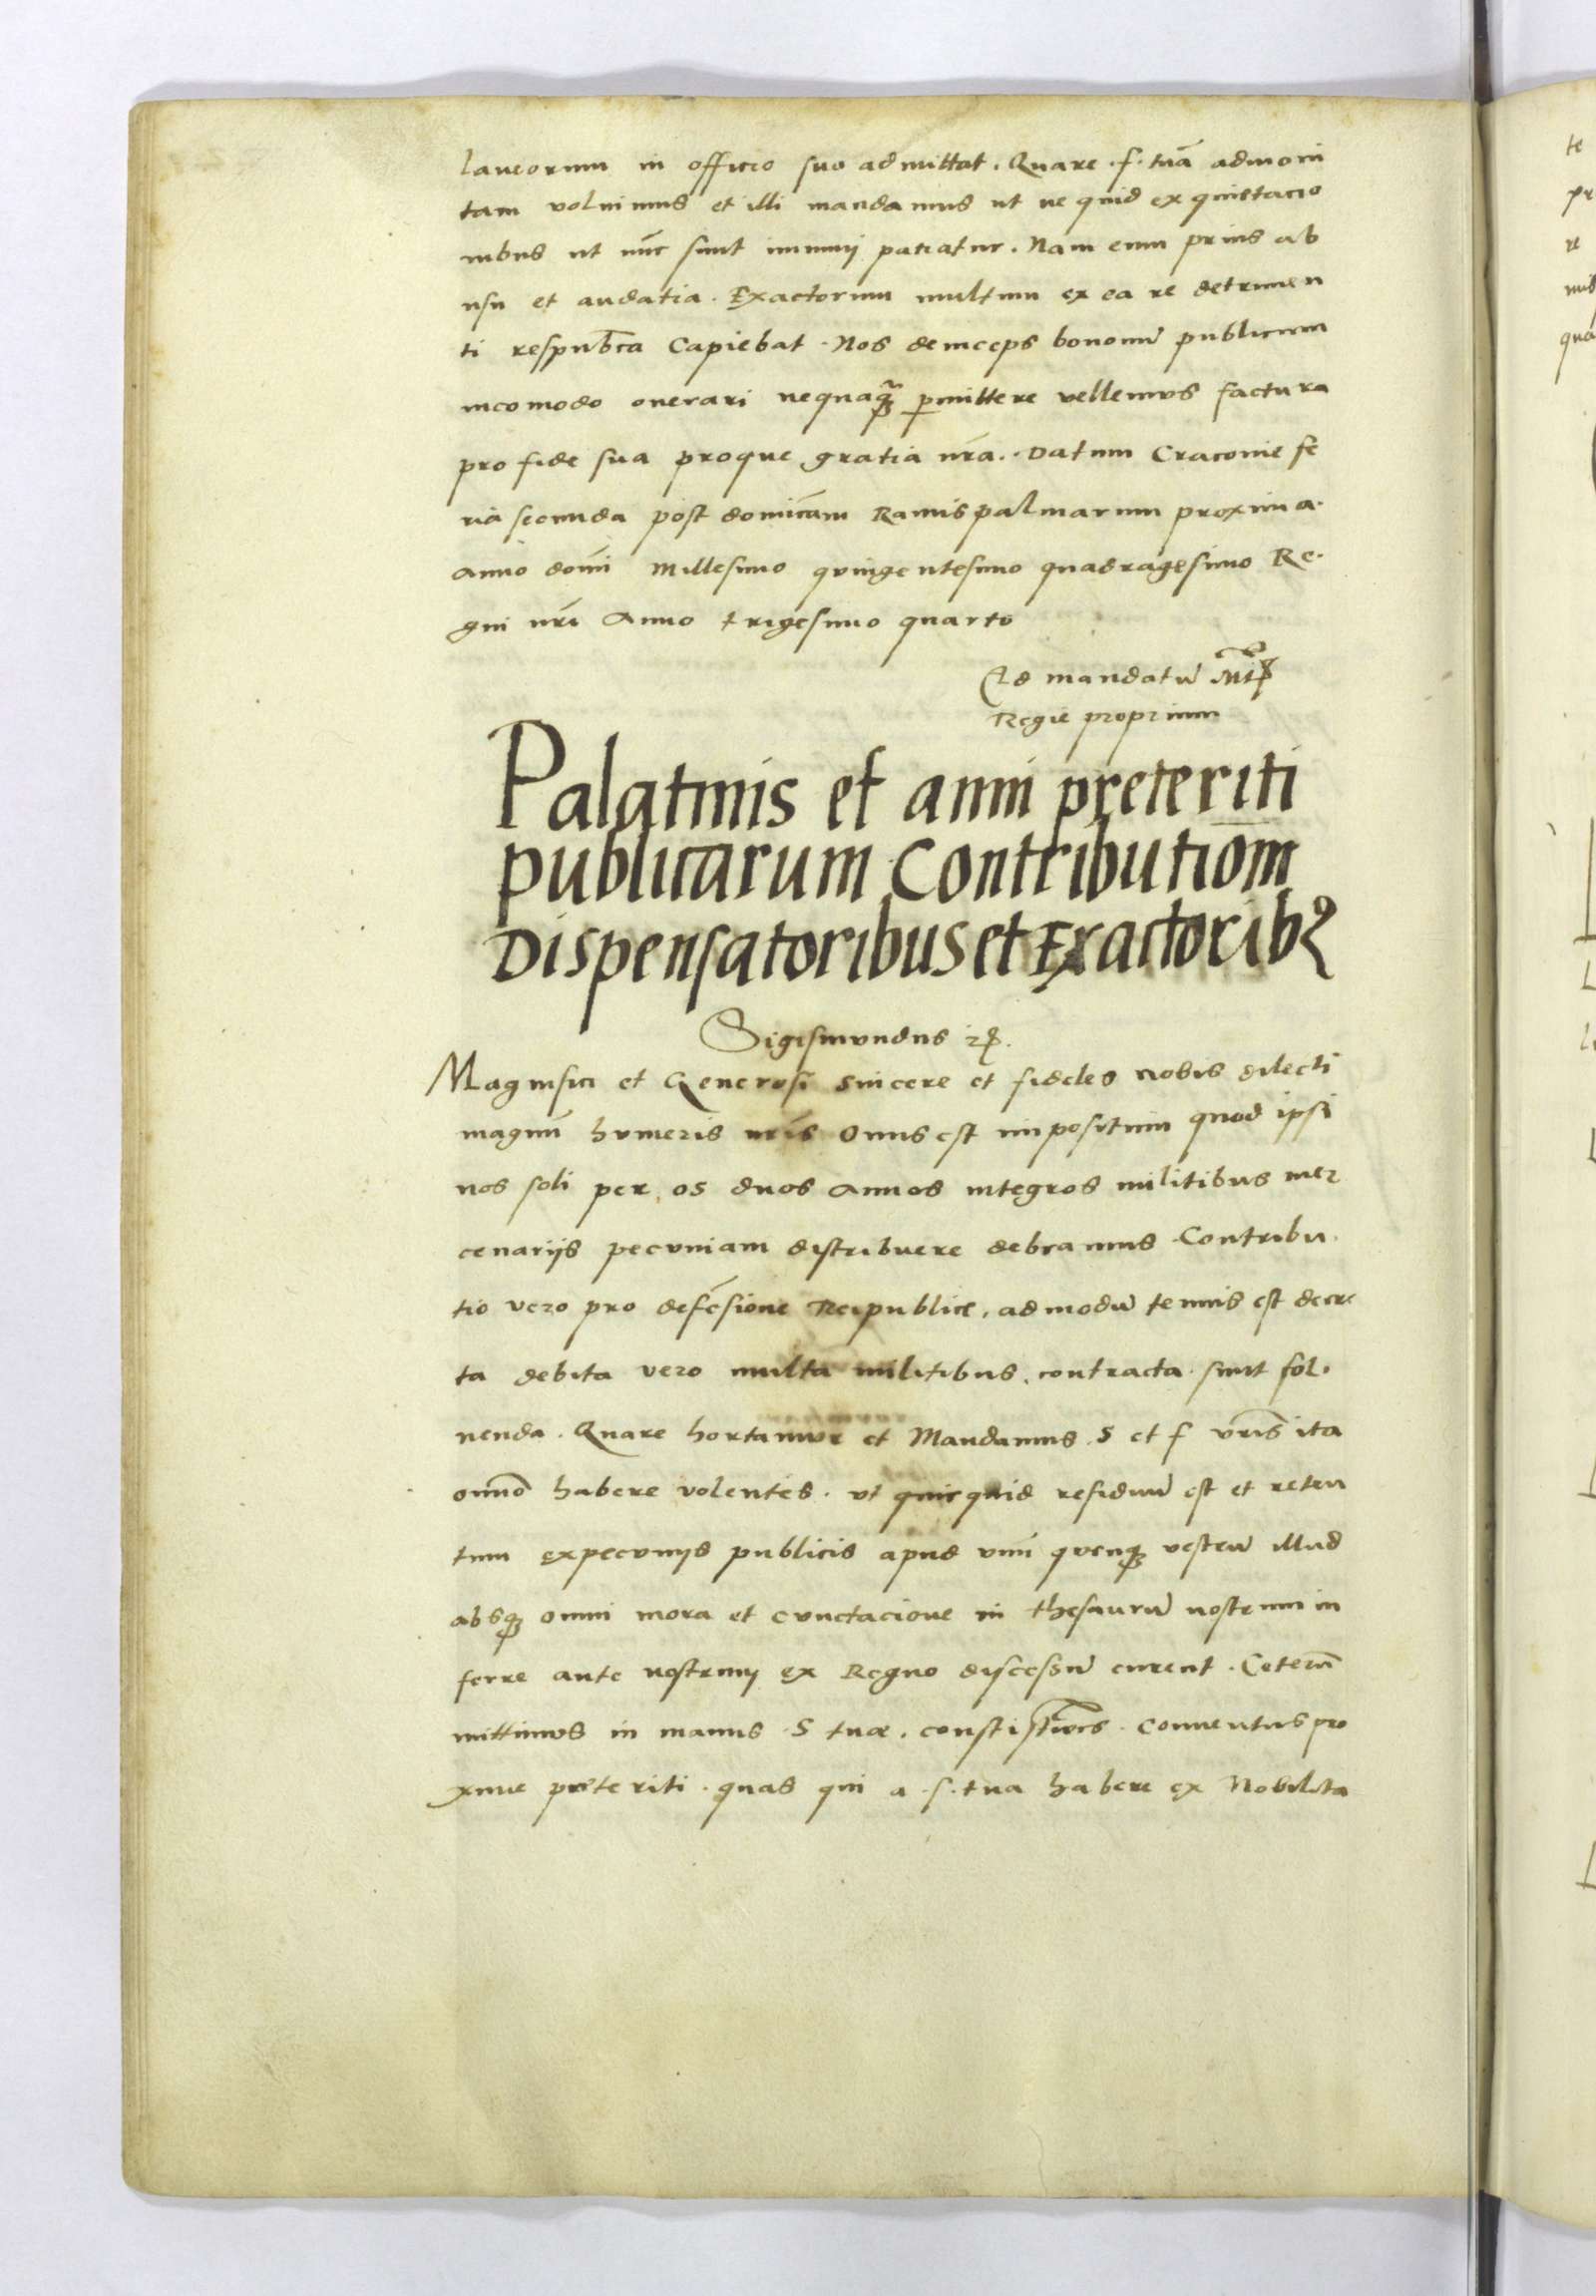 laueorum in officio suo admittat. Quare .f. tuā admoni
tam volumus et illi mandamus ut ne quid ex quietacio
nibus ut nūc sunt imminuj patiatur. Nam enim prius ab
usu et audatia. Exactorum multum ex ea re detrimen
ti respub̄ca Capiebat. Nos deinceps bonomū publicum
incomodo onerari nequaq̄ꝫ ꝑmittere vellemus factura
pro fide sua proque gratia nr̄a. Datum Cracouie fe
ria secunda post domīcam Ramispalmarum proxima.
anno domī Millesimo quingentesimo quadragesimo Re.
gni nrī Anno trigesimo quarto
Ad mandatū
Regie proprium
Palatinis et anni preteriti
publicarum Contributionū
Dispensatoribus et Exactoribꝰ
Sigismundus ꝛc.
Magnifici et Generosi sincere et fideles nobis dilecti
magnū humeris nrīs Onus est impositum quod ipsi
nos soli per os duos Annos integros militibus mer
cenarijs pecuniam distribuere debeamus. Contribu.
tio vero pro defēsione Reipublice, admodū tenuis est decre
ta debita vero multa militibus. contracta. sunt sol.
uenda. Quare hortamur et Mandamus. S et f vrīs ita
omnō habere volentes. ut quicquid residuū est et reten
tum expecunijs publicis apud vnū quenqꝫ vestrū illud
absqꝫ omni mora et cunctacione in thesaurū nostrum in
ferre ante nostrum ex Regno discessū curent. Ceterū
mittimus in manus .S tuæ. Conuentus pro
xime præteriti. quas qui a .s. tua habere ex Nobilita